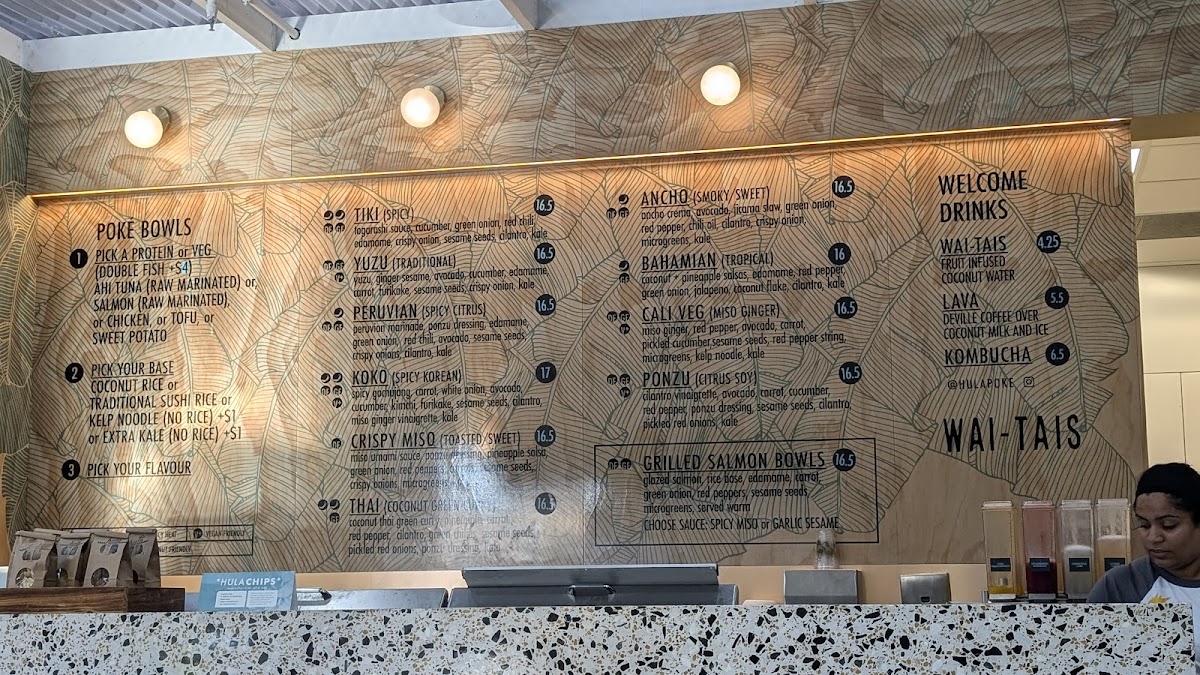 POKÉ BOWLS
1
PICK A PROTEIN or VEG
(DOUBLE FISH +$4)
AHI TUNA (RAW MARINATED) or,
SALMON (RAW MARINATED),
or CHICKEN, or TOFU, or
SWEET POTATO
2
PICK YOUR BASE
COCONUT RICE or
TRADITIONAL SUSHI RICE or
KELP NOODLE (NO RICE) +$1
or EXTRA KALE (NO RICE) +$1
3
PICK YOUR FLAVOUR
HEAT
VEGAN FRIENDLY
FRIENDLY
TIKI (SPICY) 16.5
togarashi sauce, cucumber, green onion, red chili,
edamame, crispy onion, sesame seeds, cilantro, kale
YUZU (TRADITIONAL) 16.5
yuzu, ginger sesame, avocado, cucumber, edamame,
carrot, furikake, sesame seeds, crispy onion, kale
PERUVIAN (SPICY CITRUS) 16.5
peruvian marinade, ponzu dressing, edamame,
green onion, red chili, avocado, sesame seeds,
crispy onions, cilantro, kale
KOKO (SPICY KOREAN) 17
spicy gochujang, carrot, white onion, avocado,
cucumber, kimchi, furikake, sesame seeds, cilantro,
miso ginger vinaigrette, kale
CRISPY MISO (TOASTED/SWEET) 16.5
miso umami sauce, ponzu dressing, pineapple salsa,
green onion, red peppers, carrots, sesame seeds,
crispy onions, microgreens
THAI (COCONUT GREEN CURRY) 16.5
coconut thai green curry, pineapple, carrot,
red pepper, cilantro, green chilis, sesame seeds,
pickled red onions, ponzu dressing, kale
ANCHO (SMOKY/SWEET) 16.5
ancho crema, avocado, jicama slaw, green onion,
red pepper, chili oil, cilantro, crispy onion,
microgreens, kale
BAHAMIAN (TROPICAL) 16
coconut + pineapple salsas, edamame, red pepper,
green onion, jalapeno, coconut flake, cilantro, kale
CALI VEG (MISO GINGER) 16.5
miso ginger, red pepper, avocado, carrot,
pickled cucumber, sesame seeds, red pepper string,
microgreens, kelp noodle, kale
PONZU (CITRUS SOY) 16.5
cilantro vinaigrette, avocado, carrot, cucumber,
red pepper, ponzu dressing, sesame seeds, cilantro,
pickled red onions, kale
GRILLED SALMON BOWLS 16.5
glazed salmon, rice base, edamame, carrot,
green onion, red peppers, sesame seeds,
microgreens, served warm
CHOOSE SAUCE: SPICY MISO or GARLIC SESAME
WELCOME
DRINKS
WAI-TAIS 4.25
FRUIT INFUSED
COCONUT WATER
LAVA 5.5
DEVILLE COFFEE OVER
COCONUT MILK AND ICE
KOMBUCHA 6.5
@HULAPOKE
WAI-TAIS
*HULACHIPS*